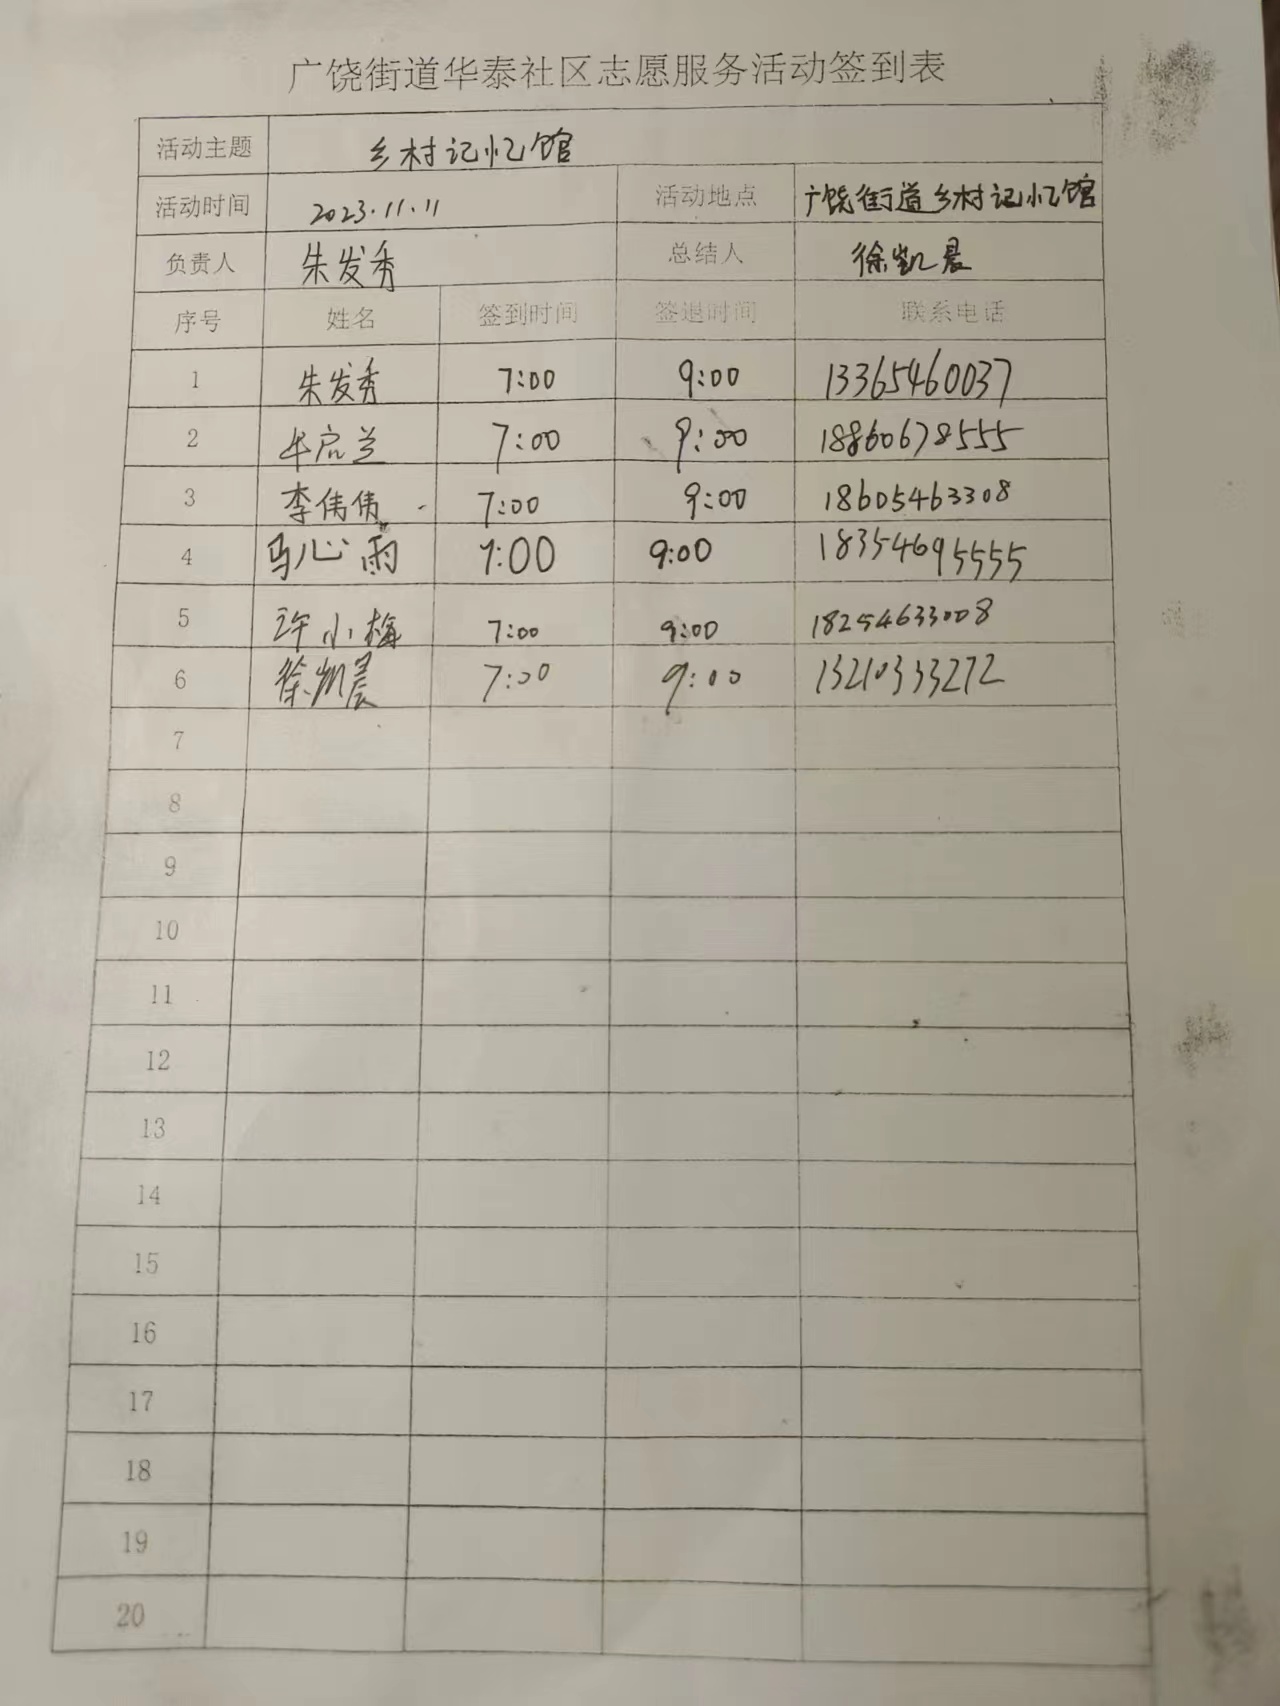 广饶街道华泰社区志愿服务活动签到表
活动主题 乡村记忆馆
活动时间 2023.11.11 活动地点 广饶街道乡村记忆馆
负责人 朱发秀 总结人 徐凯晨
序号 姓名 签到时间 签退时间 联系电话
1 朱发秀 7:00 9:00 13365460037
2 7:00 9:00 18860678555
3 李伟伟 7:00 9:00 18605463308
4 马心雨 7:00 9:00 18354695555
5 许小梅 7:00 9:00 18254633008
6 徐凯晨 7:00 9:00 13210333272
7
8
9
10
11
12
13
14
15
16
17
18
19
20